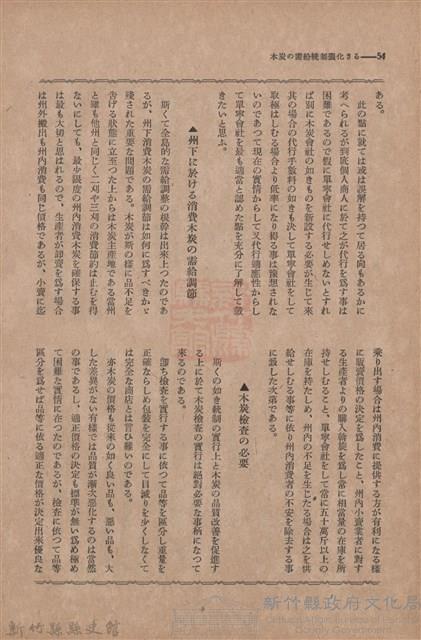 木炭の需給統制強化さる——54
ある。
此の點に就ては或は誤解を持つて居る向もあるかに
考へられるが到底個人商人に於て之が代行を爲す事は
困難であるので假に單寧會社に代行せしめないとすれ
ば別に木炭會社の如きものを新設する必要が生じて來
其の場合の代行手數料の如きも決して單寧會社をして
取極はしむる場合より低率になり得る事は豫想されな
いのであつて現在の實情からして又代行適應性からし
て單寧會社を最も適當と認めた點を充分に了解して戴
きたいと思ふ。
▲州下に於ける消費木炭の需給調節
斯くて全島的な需給調整の根幹は出來上つたのであ
るが、州下消費木炭の需給調節は如何に爲すべきかと
殘された重要な問題である。木炭が斯の樣に品不足を
告げる狀態に立至つた上からは木炭主產地である當州
と雖も他州と同じく二刈や三刈の消費節約は止むを得
ないにしても、最少限度の州內消費木炭を確保する事
は最も大切と思はれるので、生產者が卸賣を爲す場合
は州外搬出も州內消費も同じ價格であるが、小賣に迄
乘り出す場合は州內消費に提供する方が有利になる樣
に販賣價格の決定を爲したこと、州內小賣業者に對す
る生產者よりの購入斡旋を爲し常に相當量の在庫を所
持せしむること、單寧會社をして常に五十萬斤以上の
在庫を持たしめ、州內の不足を生じたる場合は之を供
給せしむる事等に依り州內消費者の不安を除去する事
に設した次第である。
▲木炭檢查の必要
斯くの如き統制の實行上と木炭の品質改善を促進す
る上に於て木炭檢查の實行は絕對必要な事柄になつて
來るのである。
卽ち檢查を實行する事に依つて品等を區分し重量を
正確ならしめ包裝を完全にして目減りを少くしなくて
は完全な商店とは言ひ難いのである。
亦木炭の價格も從來の如く良い品も、惡い品も、大
した差異がない有樣では品質が漸次惡化するのは當然
の事であるし、適正價格の決定も標準が無い爲め極め
て困難な實情に在つたのであるが、檢查に依つて品等
區分を爲せば品等に依る適正な價格が決定出來優良な
新竹縣縣史館
新竹縣政府文化局
Cultural Affairs Bureau of Hsinchu
County Government